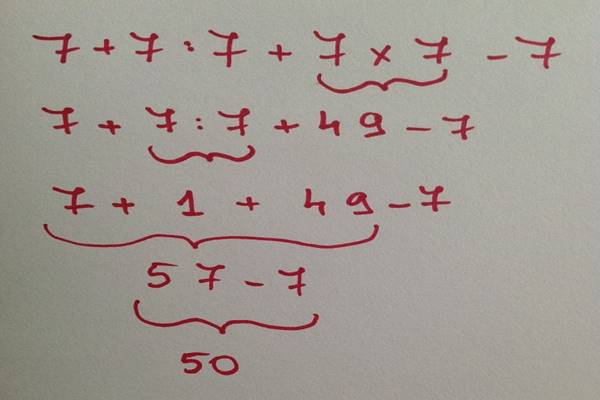 7 + 7 : 7 + 7 × 7 - 7
7 + 7 : 7 + 49 - 7
7 + 1 + 49 - 7
57 - 7
50